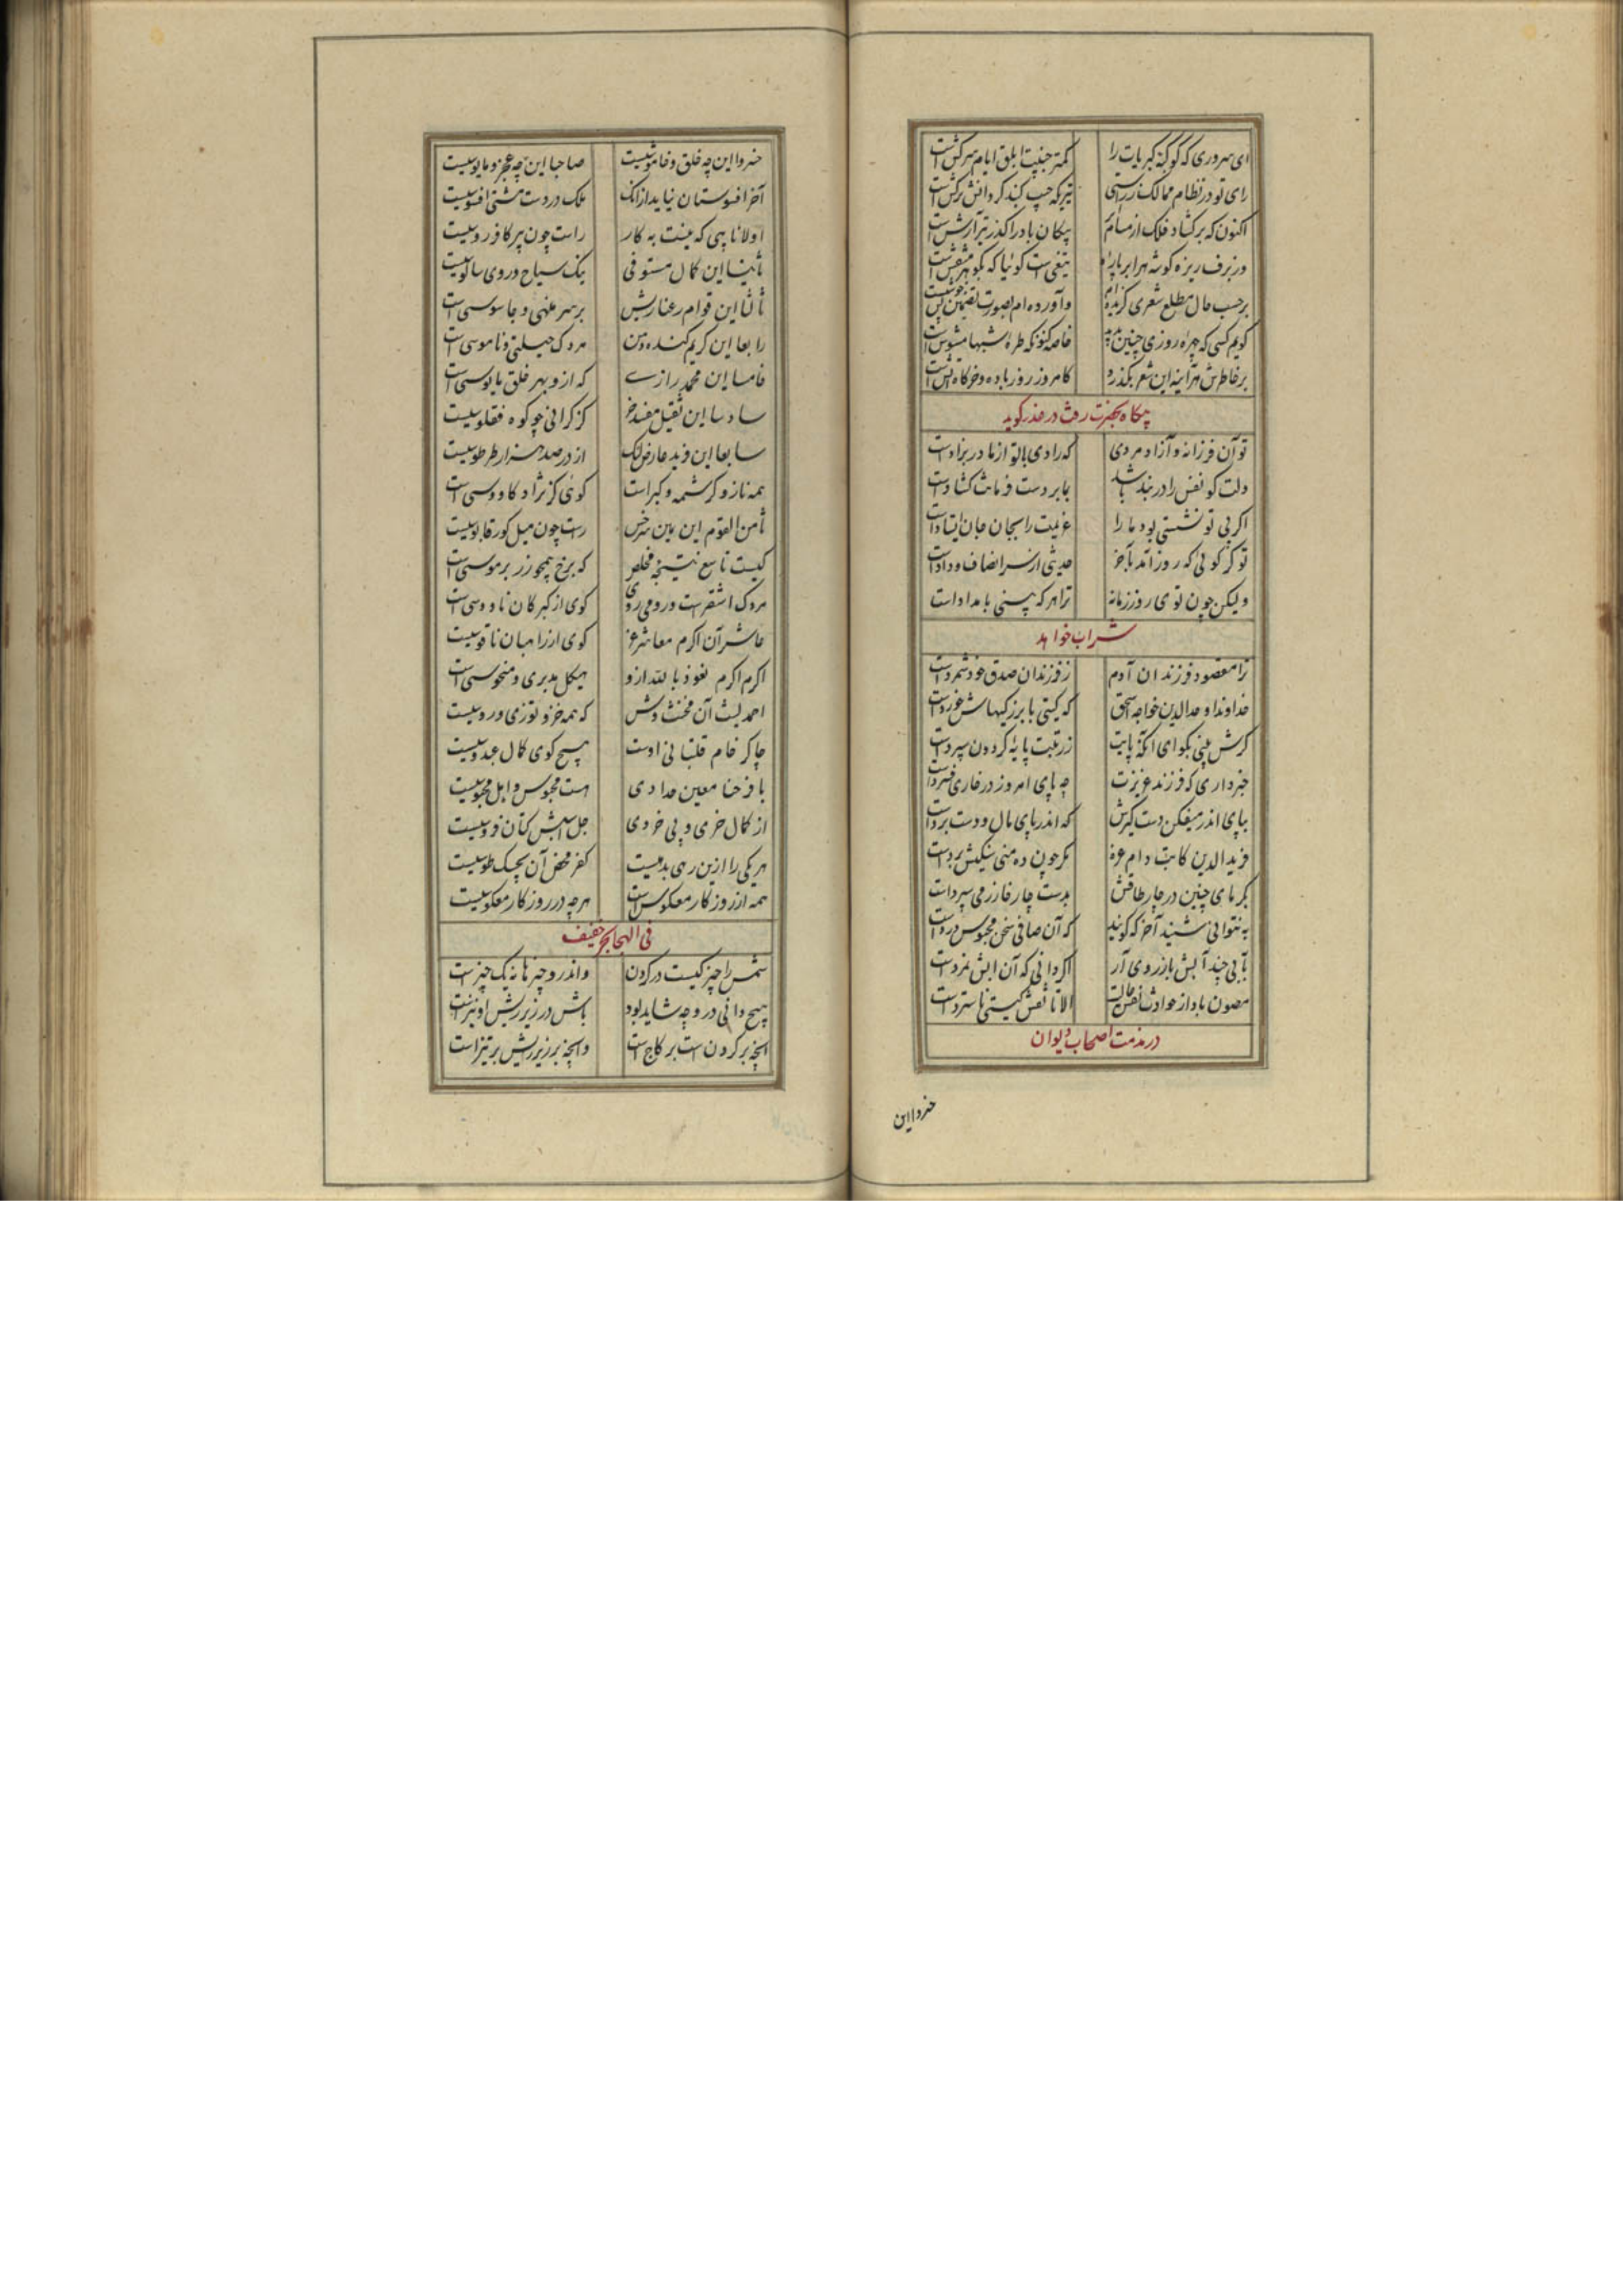 ای سروری که کوکبهٔ کبریات را
کمتر جنیبت ابلق ایام سرکش است
رای تو در نظام ممالک براستی
تیریکه جیب گنبد گردانش ترکش است
اکنون که برگشاد فلک از مسام
پیکان باد را گذر تیر آرش است
وز برف ریزه گوشه هر ابر پاره
تیغی است گوئیا که بگوهر منقش است
بر حسب حال مطلع شعری گزیده‌ام
و آورده‌ام بصورت تضمین بس خوشست
گویم کسی که چهرهٔ روزی چنین بدید
خاصه کنونکه طرهٔ شبها مشوش است
بر خاطرش هر آینه این شعر بگذرد
کامروز روز باده و خرگاه و آتش است
پیکاه بحضرت رفت در عذر گوید
تو آن فرزانه و آزاد مردی
که رادی با تو از مادر بزادست
دلت کو نفس را در بند
با بر دست فرمانت گشادست
اگر بی تو نشستی بود ما را
عزیمت را بجان جان ایستادست
تو گر گوئی که روز آمد بآخر
حدیثی از سر انصاف و دادست
ولیکن چون توی روز زمانه
ترا هر که ببینی بامدادست
شراب خواهد
ترا مقصود فرزندان آدم
ز فرزندان صدق خود شمردست
خداوندا وحدالدین خواجه اسحق
که گیتی با بزرگیهاش خوردست
گرش بینی بگو ای آنکه پایت
ز رتبت پایهٔ گردون سپردست
خبر داری که فرزند عزیزت
چه پای امروز در خاری فشردست
بپای اندر میفکن دست گیرش
که اندر پای مال و دست بردست
فرید الدین کاتب دام عزه
مگر چون ده منی سیکیش بردست
بگرمای چنین در چار طاقش
بدست چار خازن می سپردست
نه نتوانی شنید آخر که گویند
که آن صافی سخن محبوس دردست
بآبی چند آبش باز روی آر
اگر دانی که آن آبش نمردست
مصون باد از حوادث نفس مالت
الا تا نقش گیتی ناستردست
در مذمت اصحاب دیوان
خسروا این
خسروا این چه خلق و خاموشیست
صاحبا این چه عجز و مایوسیست
آخر افسوستان نیاید ازانک
ملک در دست مشتی افسوسیست
اولا نایبی که نیست به کار
راست چون پیر کافر روسیست
ثانیا این کمال مستوفی
یک سیاح در وی سالوسیست
ثالثا این قوام رعنا ریش
بر سر منهی و جاسوسی است
رابعا این کریم گنده دهن
مردک حیلتی و ناموسی است
خامسا این محمد رازی
که ازو بهر خلق مایوسی است
سادسا این ثقیل مفسد خر
کز گرانی چو کوه فقلوسیست
سابعا این فرید عارض لنگ
از در صد هزار طرطوسیست
همه ناز و کرشمه و کبر است
گوئی کز نژاد کاووسی است
ثامن القوم این یمین سرخس
راست چون میل گور قابوسیست
کیست تاسع نتیجه مخلص
که برخ همچو زر بر موسی است
مردک اشقر است و رومی روی
گوی از گبرکان ناووسی است
عاشر آن اکرم معاشر غر
گوی از راهبان ناقوسیست
اکرم اکرم نعوذ بالله ازو
هیکل مدبری و منحوسی است
احمد لیث آن مخنث وش
که همه خز و توزی و روسیست
چاکر خام قلتبانی اوست
هیچ گوی کمال عبدوسیست
باز حنا معین حدادی
هست مجوس و اهل مجوسیست
از کمال خری و بی خردی
جل اسبش کتان فروسیست
هر یکی را ازین رهی بدهیست
کفر محض آن بچهک طوسیست
همه از روزگار معکوس است
هرچه در روزگار معکوسیست
فی الهجا بحر خفیف
شمس را چیزکیست در گردن
و اندر و چیزها نه یک چیزست
هیچ دانی در و چه شاید بود
باش در زیر ریش او نیزست
آنچه بر گردن است بر کاج است
و آنچه بر زیر ریش بر تیز است